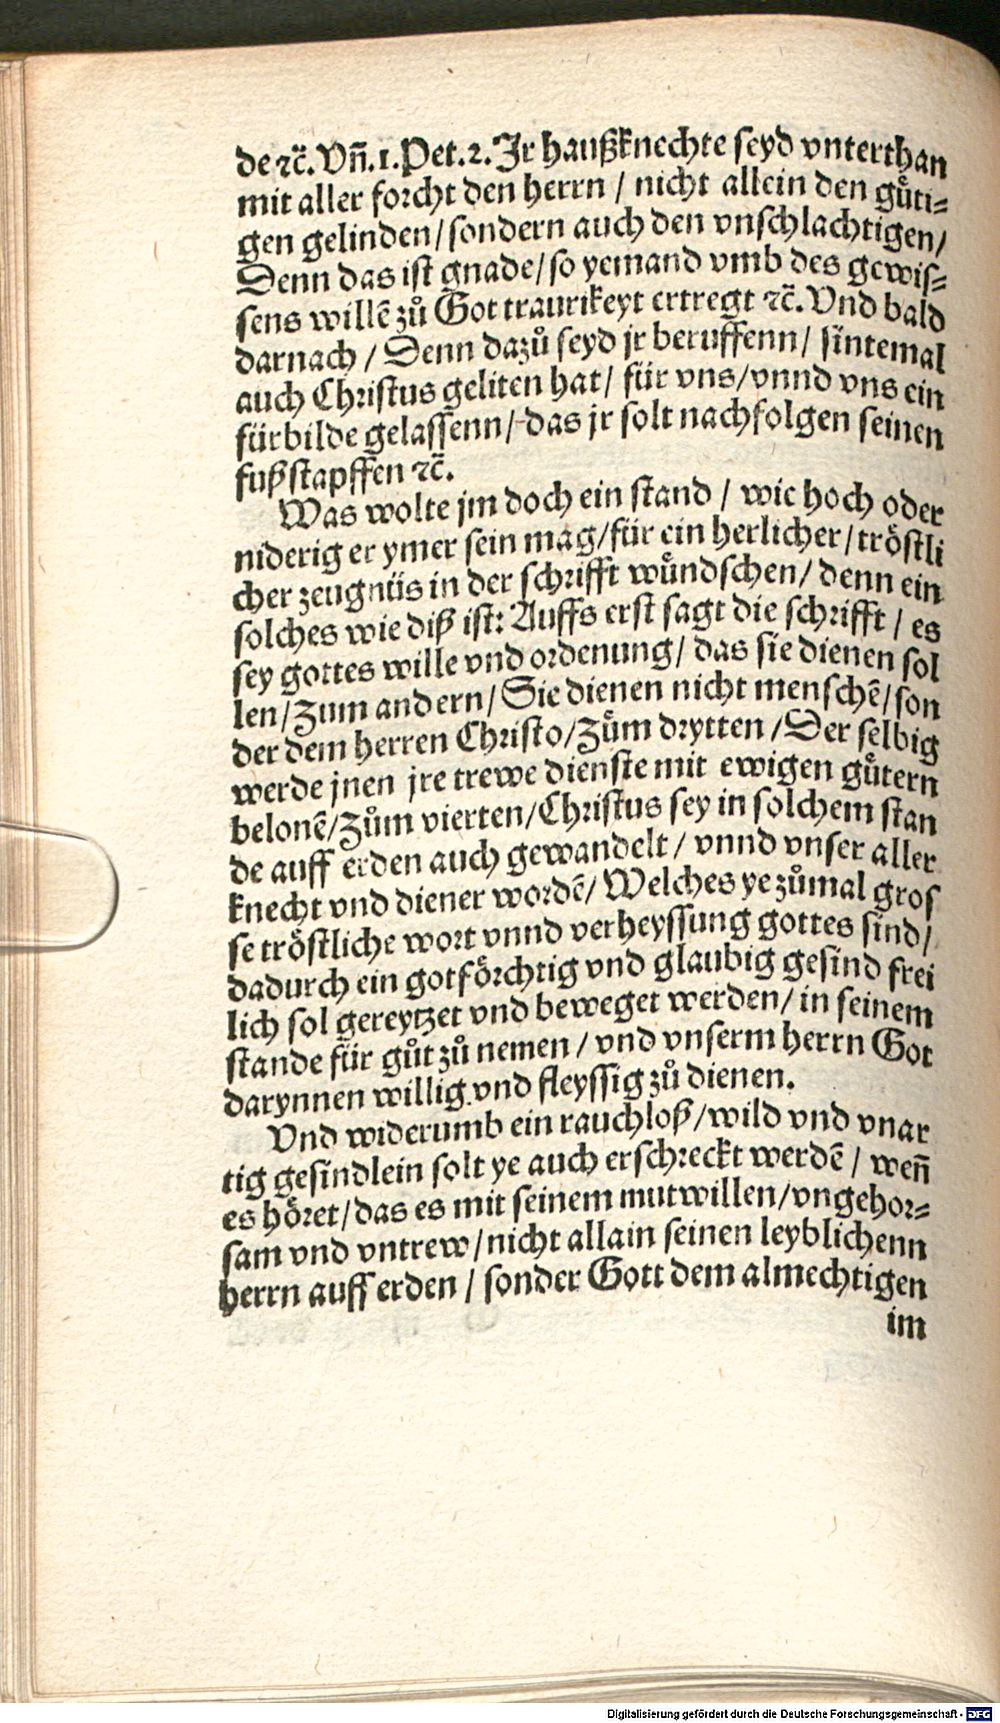 de ꝛc̃. Vñ. 1. Pet. 2. Jr haußknechte seyd vnterthan
mit aller forcht den herrn / nicht allein den guͤti⸗
gen gelinden / sondern auch den vnschlachtigen /
Denn das ist gnade / so yemand vmb des gewis⸗
sens willẽ zů Got traurikeyt ertregt ꝛc̃. Vnd bald
darnach / Denn dazů seyd jr beruffenn / sintemal
auch Christus geliten hat / für vns / vnnd vns ein
fürbilde gelassenn / das jr solt nachfolgen seinen
fußstapffen ꝛc̃.
Was wolte jm doch ein stand / wie hoch oder
niderig er ymer sein mag / für ein herlicher / tröstli
cher zeugnüs in der schrifft wuͤndschen / denn ein
solches wie diß ist: Auffs erst sagt die schrifft / es
sey gottes wille vnd ordenung / das sie dienen sol
len / Zum andern / Sie dienen nicht menschẽ / son
der dem herren Christo / Zům drytten / Der selbig
werde jnen jre trewe dienste mit ewigen guͤtern
belonẽ / Zům vierten / Christus sey in solchem stan
de auff erden auch gewandelt / vnnd vnser aller
knecht vnd diener wordẽ / Welches ye zůmal gros
se tröstliche wort vnnd verheyssung gottes sind /
dadurch ein gotförchtig vnd glaubig gesind frei
lich sol gereytzet vnd beweget werden / in seinem
stande für gůt zů nemen / vnd vnserm herrn Got
darynnen willig vnd fleyssig zů dienen.
Vnd widerumb ein rauchloß / wild vnd vnar
tig gesindlein solt ye auch erschreckt werdẽ / weñ
es höret / das es mit seinem mutwillen / vngehor⸗
sam vnd vntrew / nicht allain seinen leyblichenn
herrn auff erden / sonder Gott dem almechtigen
im
Digitalisierung gefördert durch die Deutsche Forschungsgemeinschaft - DFG